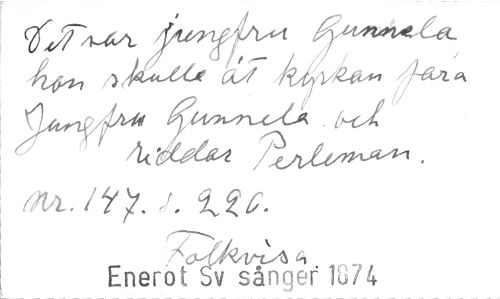 Det var jungfru Gunnela
hon skulle åt kyrkan fara
Jungfru Gunnela och
riddar Perleman.
Nr. 147. s. 220.
Folkvisa.
Enerot Sv sånger 1874